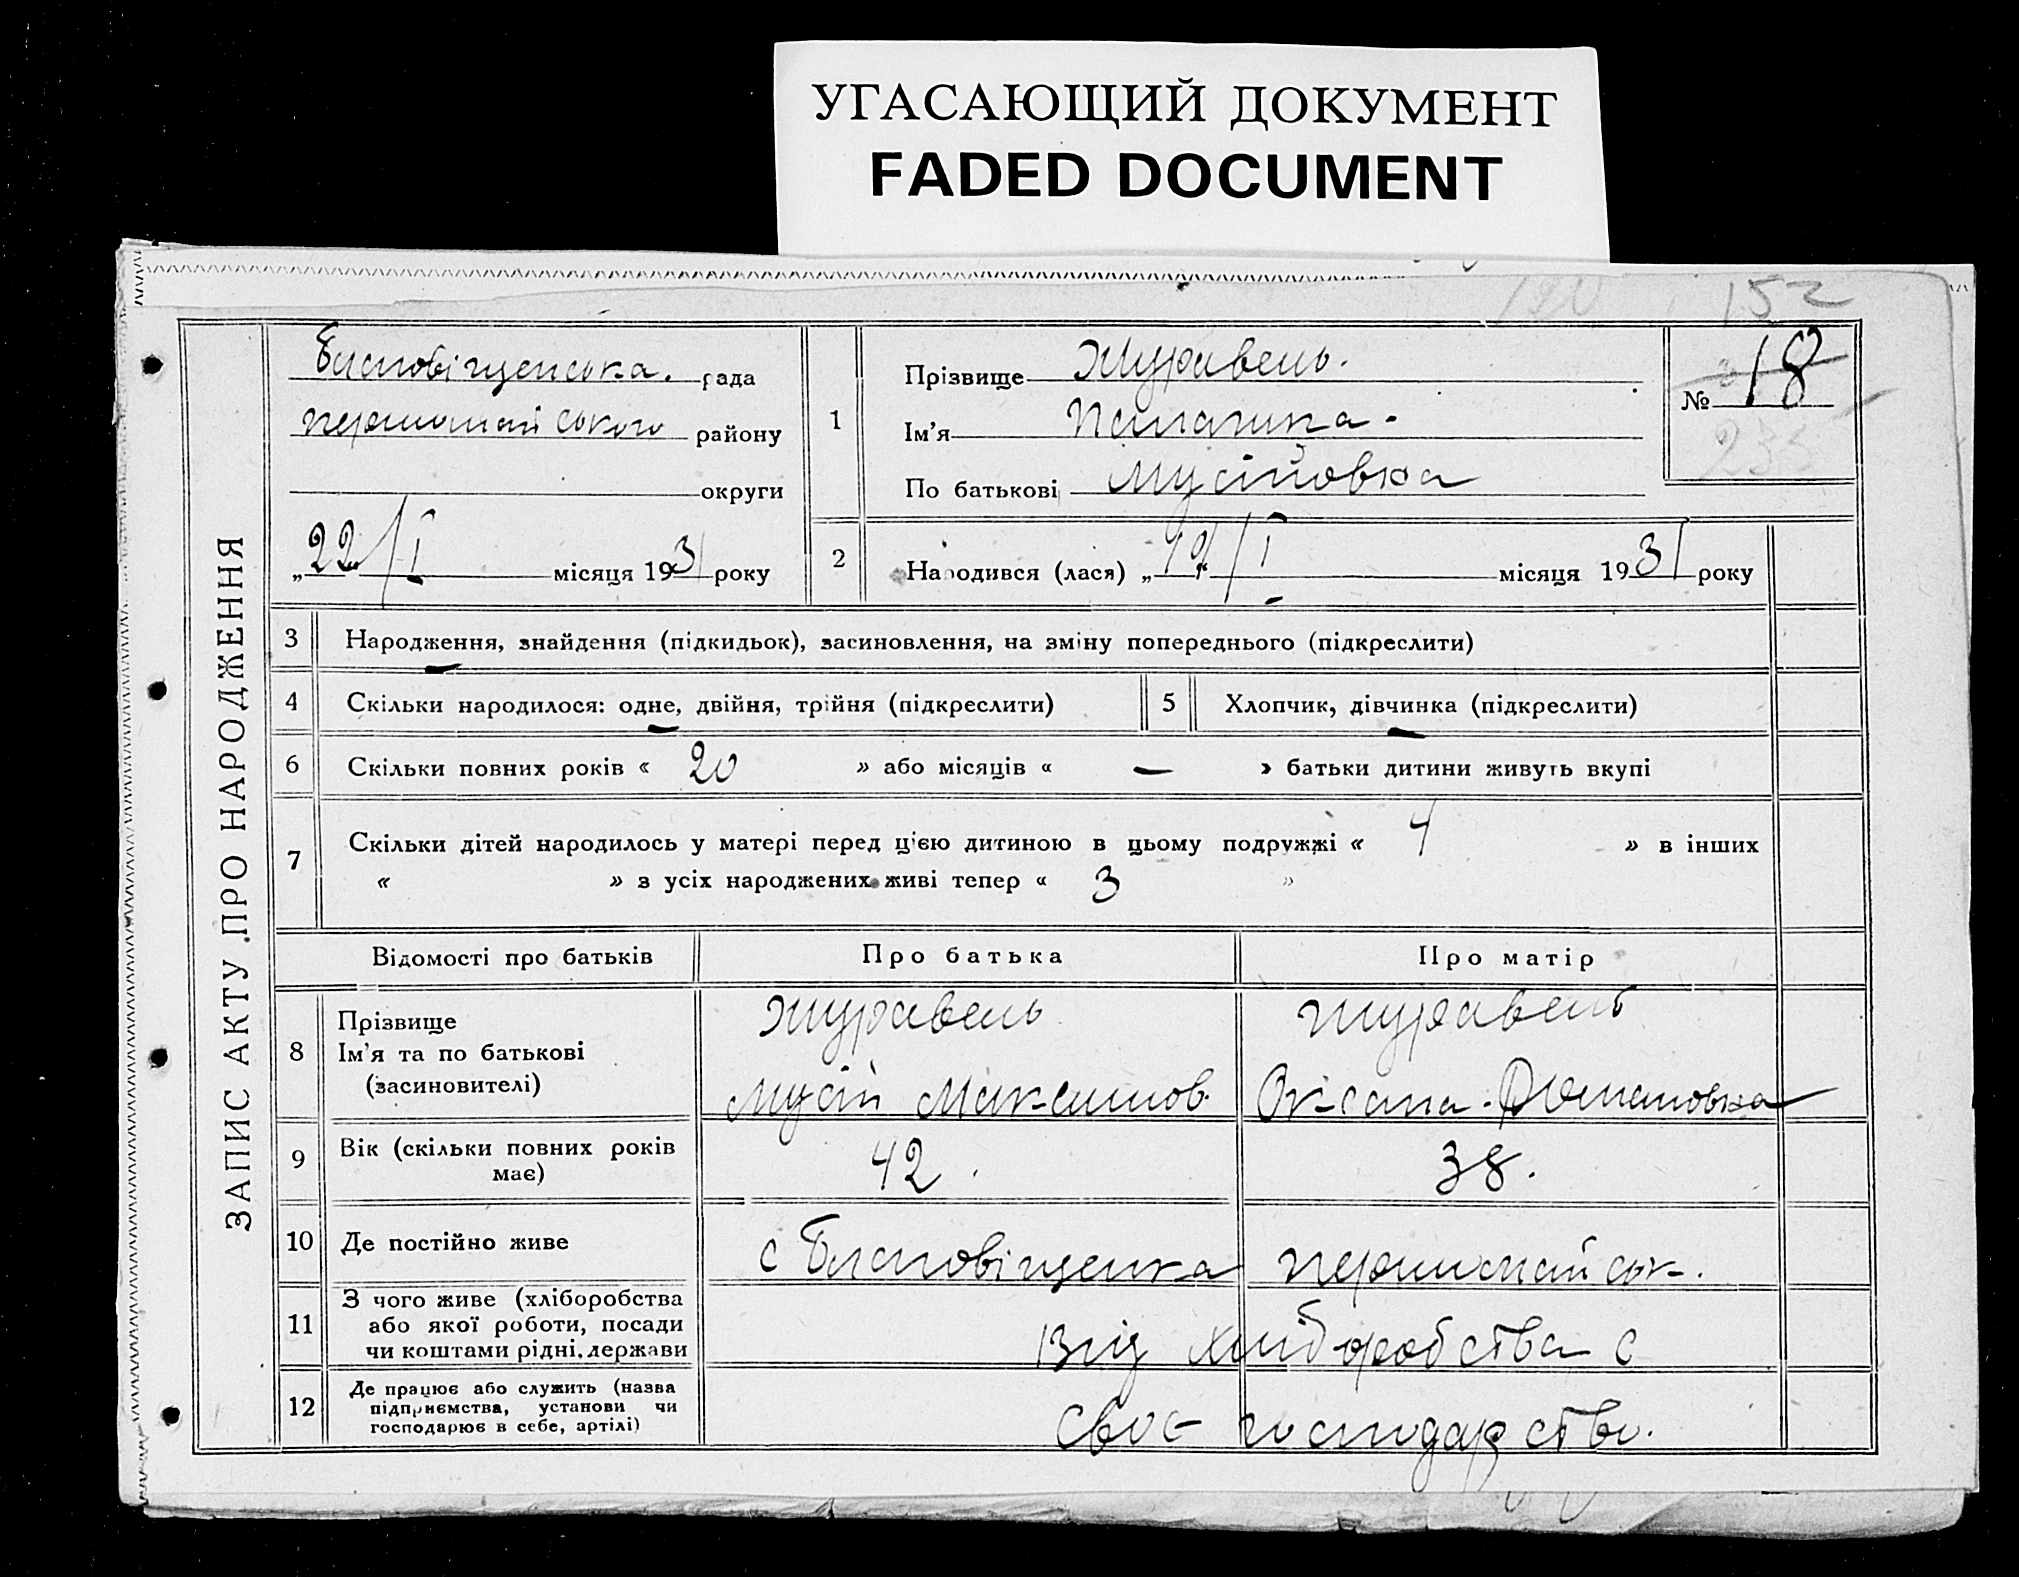 УГАСАЮЩИЙ ДОКУМЕНТ
FADED DOCUMENT
152
ЗАПИС АКТУ ПРО НАРОДЖЕННЯ
Благовіщенська. рада
Першомайського району
округи
„22/I місяця 1931 року
1
Прізвище Журавель.
Ім'я Палагина.
По батькові Мусійовна
№ 18
2
Народився (лася) „19/I місяця 1931 року
3 Народження, знайдення (підкидьок), засиновлення, на зміну попереднього (підкреслити)
4 Скільки народилося: одне, двійня, трійня (підкреслити)
5 Хлопчик, дівчинка (підкреслити)
6 Скільки повних років « 20 » або місяців « — » батьки дитини живуть вкупі
7 Скільки дітей народилось у матері перед цією дитиною в цьому подружжі « 4 » в інших
« » з усіх народжених живі тепер « 3 »
Відомості про батьків Про батька Про матір
8
Прізвище
Ім'я та по батькові
(засиновителі)
Журавель
Мусій Максимов.
Журавель
Оксана
9
Вік (скільки повних років
має)
42. 38.
10 Де постійно живе с Благовіщенка Першомайськ.
11
З чого живе (хліборобства
або якої роботи, посади
чи коштами рідні, держави
від хліборобства с
12
Де працює або служить (назва
підприємства, установи чи
господарює в себе, артілі)
своє господарство.